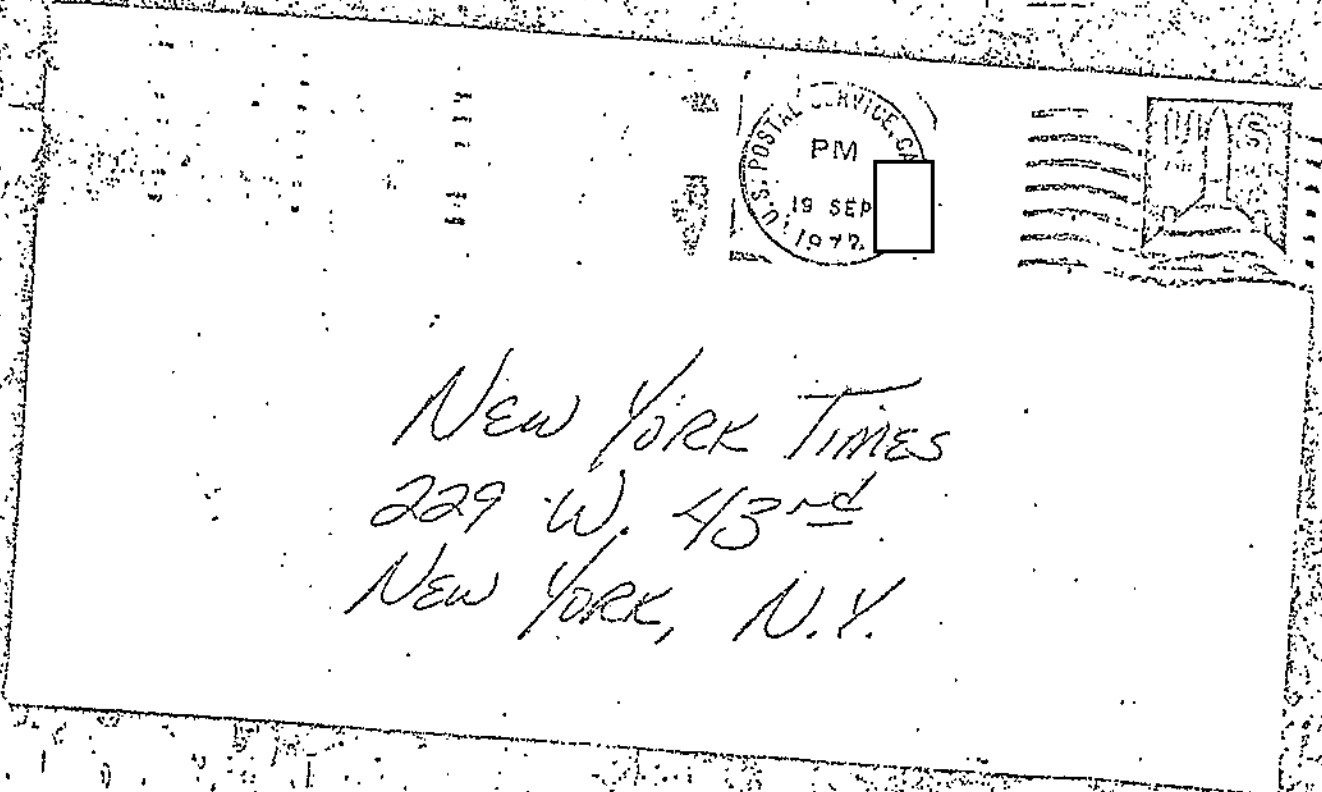 U.S. POSTAL SERVICE, CA
PM
19 SEP
US
NEW YORK TIMES
229 W. 43rd
NEW YORK, N.Y.